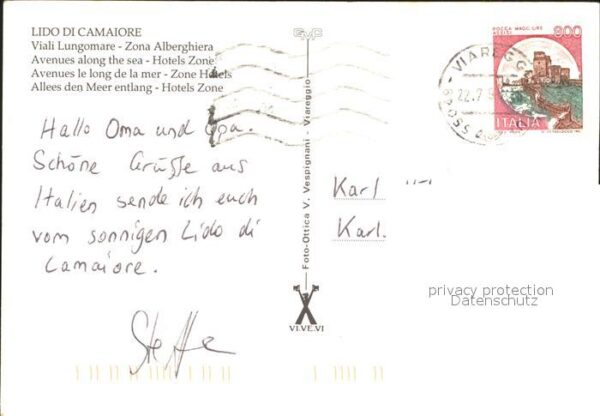 LIDO DI CAMAIORE
Viali Lungomare - Zona Alberghiera
Avenues along the sea - Hotels Zone
Avenues le long de la mer - Zone Hotels
Allees den Meer entlang - Hotels Zone
Hallo Oma und Opa.
Schöne Grüße aus
Italien sende ich euch
vom sonnigen Lido di
Camaiore.
Steffe
Foto-Ottica V. Vespignani - Viareggio
VI.VE.VI
ROCCA MAGG. LIRE
ASSISI
900
ITALIA
VIAREGG
Karl
Karl.
privacy protection
Datenschutz